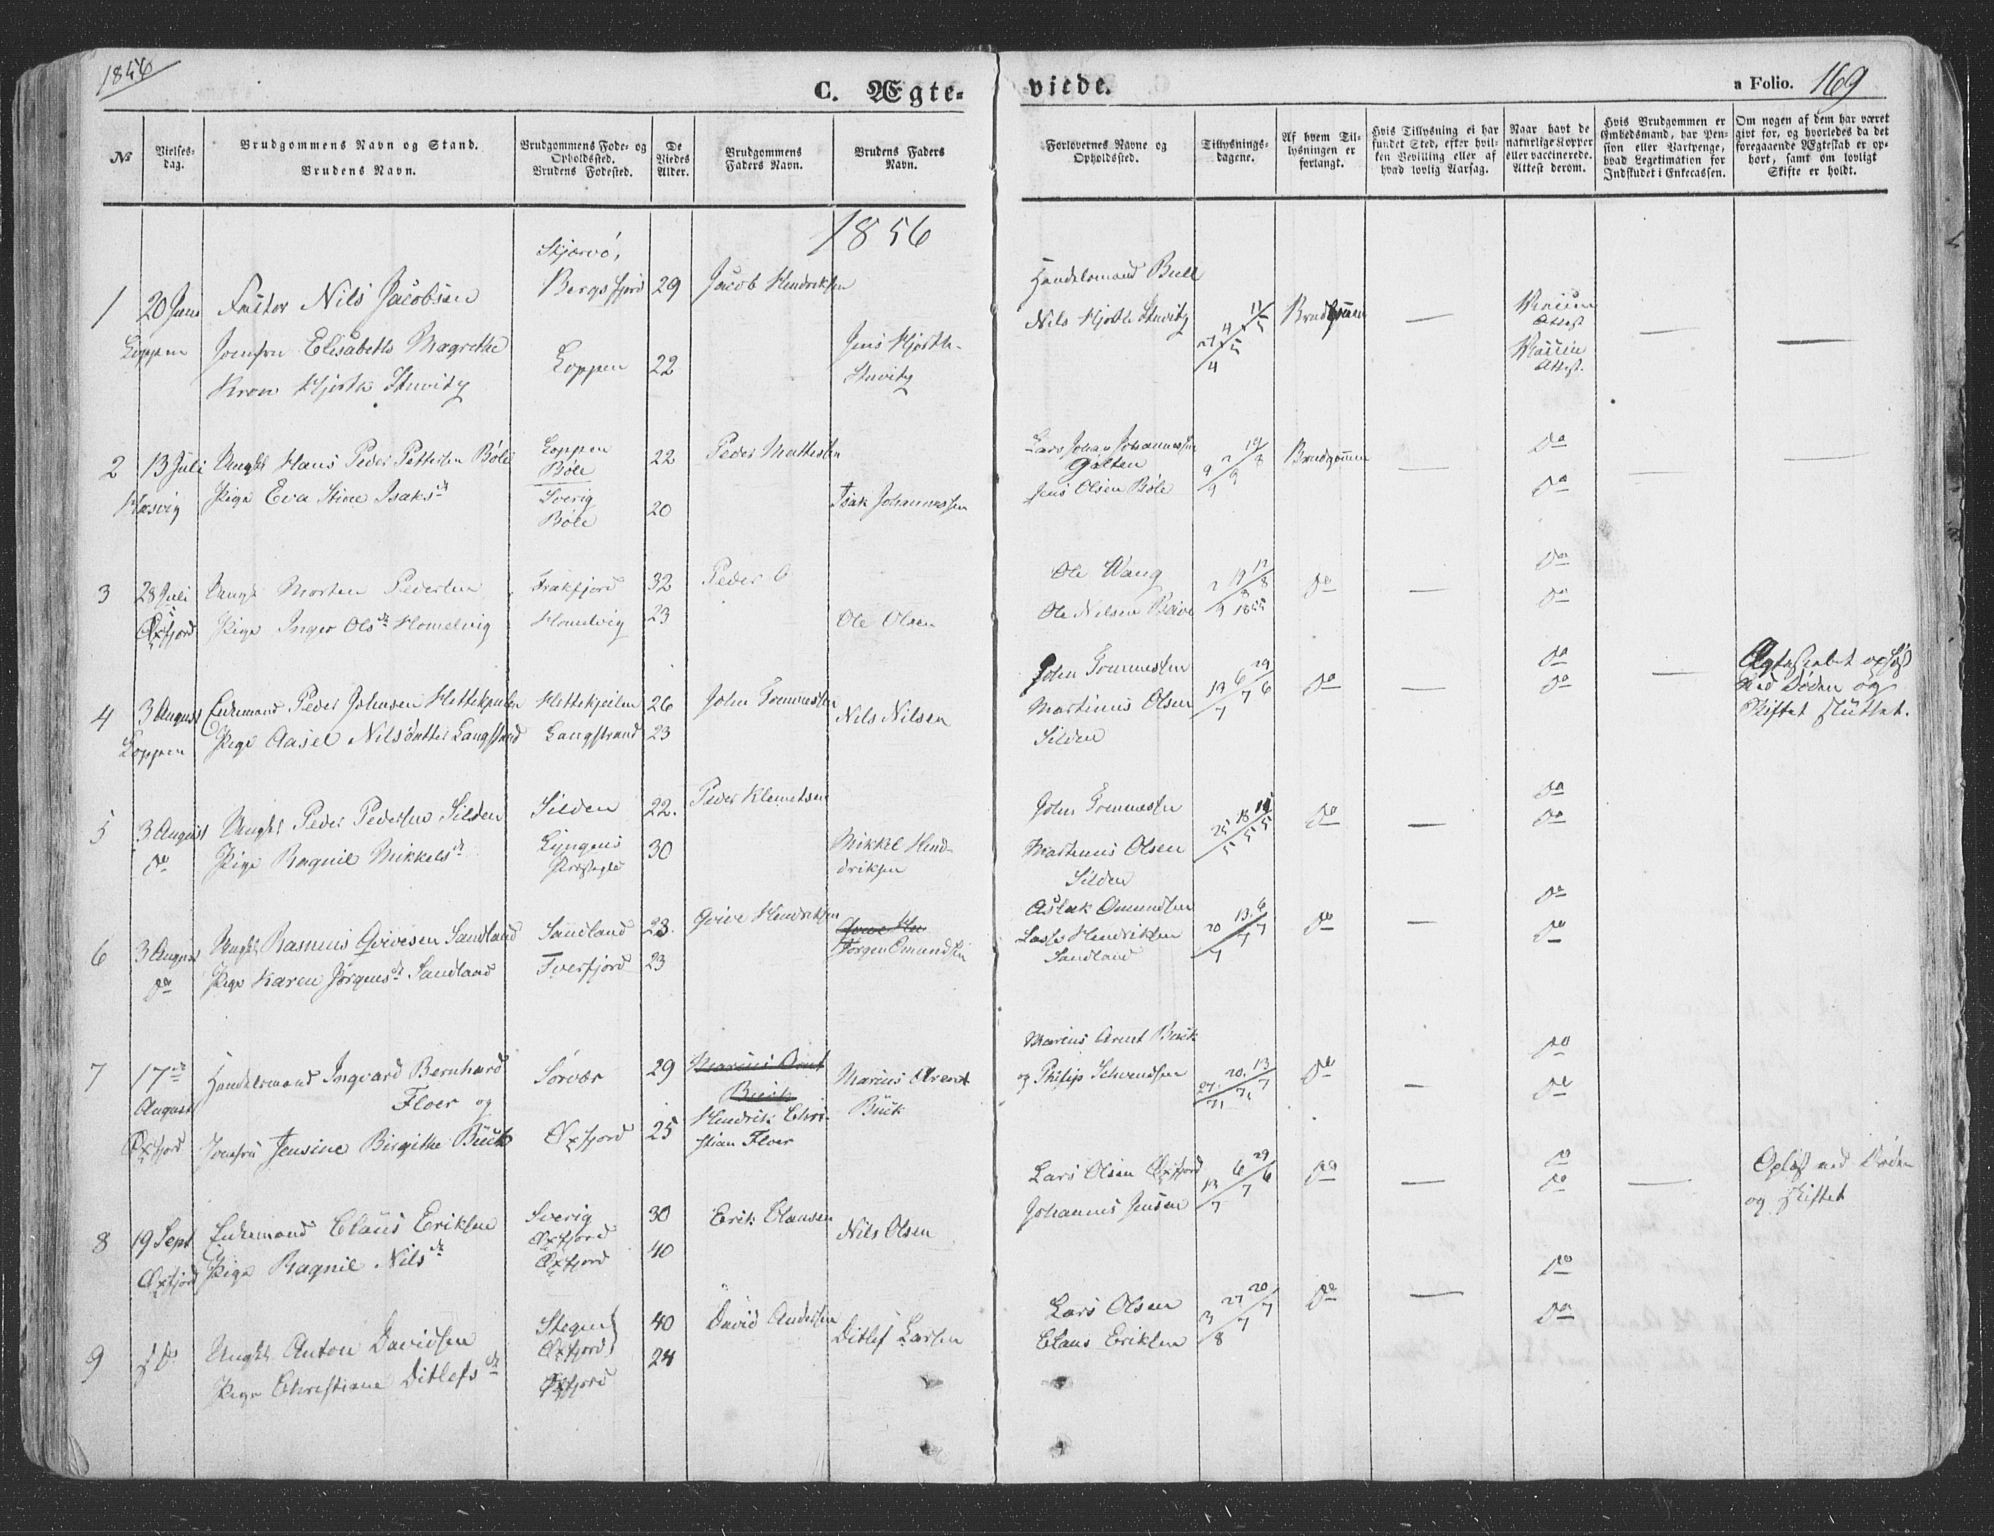 1856
C. Ægteviede.
a Folio. 169
No
Vielses-
dag.
Brudgommens Navn og Stand.
Brudens Navn.
Brudgommens Føde- og
Opholdssted.
Brudens Fødested.
De
Viedes
Alder.
Brudgommens
Faders Navn.
Brudens Faders
Navn.
Forlovernes Navne og
Opholdssted.
Tillysnings-
dagene.
Af hvem Til-
lysningen er
forlangt.
Hvis Tillysning ei har
fundet Sted, efter hvil-
ken Bevilling eller af
hvad lovlig Aarsag.
Naar havt de
naturlige Kopper
eller vaccinerede.
Attest derom.
Hvis Brudgommen er
Embedsmand, har Pen-
sion eller Vartpenge,
hvad Legetimation for
Indskudet i Enkecassen.
Om nogen af dem har været
givt for, og hvorledes da det
foregaaende Ægtestad er op-
hørt, samt om lovligt
Skifte er holdt.
1856
1
20 Juni
Loppen
Factor Nils Jacobsen
Jomfru Elisabeth Magrethe
Kron Hjorth Stuvitz
Skjærvö,
Bergsfjord
Loppen
29
22
Jacob Hendriksen
Jens Hjorth
Stuvitz
Handelsmand Buck
Nils Hjorth Stuvitz
Brudgom
Vaccin
Attest
Vaccin
Attest.
2
13 Juli
Hasvig
Ungk Hans Peder Pettersen Böle
Pige Eva Stine Isaksdr
Loppen
Böle
Sverig
Böle
22
20
Peder Mattesen
Isak Johannessen
Lars Johan Johannessen
Galten
Jens Olsen Böle
Brudgommen
Do
Do
3
28 Juli
Øxfjord
Ungk Morten Pedersen
Pige Inger Olsdr Homelvig
Frakfjord
Homelvig
32
23
Peder O
Ole Olsen
Ole Wang
Ole Nilsen
1855
Do
Do
Do
4
3 August
Loppen
Enkemand Peder Johnsen Hettekjeilen
Pige Aasel Nilsdatter Langstrand
Hettekjeilen
Langstrand
26
23
John Tommesen
Nils Nilsen
John Tommesen
Martinus Olsen
Silden
Do
Do
Do
Ægteskabet opløst
ved Døden og
Skiftet sluttet.
5
3 August
Do
Ungk Peder Pedersen Silden
Pige Ragnil Mikkelsdr
Silden
Lyngens
Præstegld
22.
30
Peder Klemetsen
Mikkel Hend-
driksen
John Tommesen
Martinus Olsen
Silden
Do
Do
Do
6
3 August
Do
Ungk Rasmus Qvivesen Sandland
Pige Karen Jørgensdr Sandland
Sandland
Tverfjord
23.
23
Qvive Hendriksen
Jørgen Omundsen
Aslak Omundsen
Lasse Hendriksen
Sandland
Do
Do
Do
7
17de
August
Øxfjord
Handelsmand Ingvard Bernhard
Floer og
Jomfru Jensine Birgithe Buck
Sørvær
Øxfjord
29
25
Marius Arnt
Buck
Hendrik Chri-
stian Floer
Marius Arent
Buck
Marius Arnt Buck
og Philip Schwendsen
Do
Do
Do
8
19 Sept
Øxfjord
Enkemand Claus Eriksen
Pige Ragnil Nilsdr
Sverig
Øxfjord
Øxfjord
30
40
Erik Clausen
Nils Olsen
Lars Olsen Øxfjord
Johannes Jensen
Do
Do
Do
Opløst ved Døden
og skiftet
9
Do
Ungk Anton Davidsen
Pige Christiane Ditlefsdr
Stegen
Øxfjord
Øxfjord
40
24
David Andersen
Ditlef Larsen
Lars Olsen
Claus Eriksen
Do
Do
Do